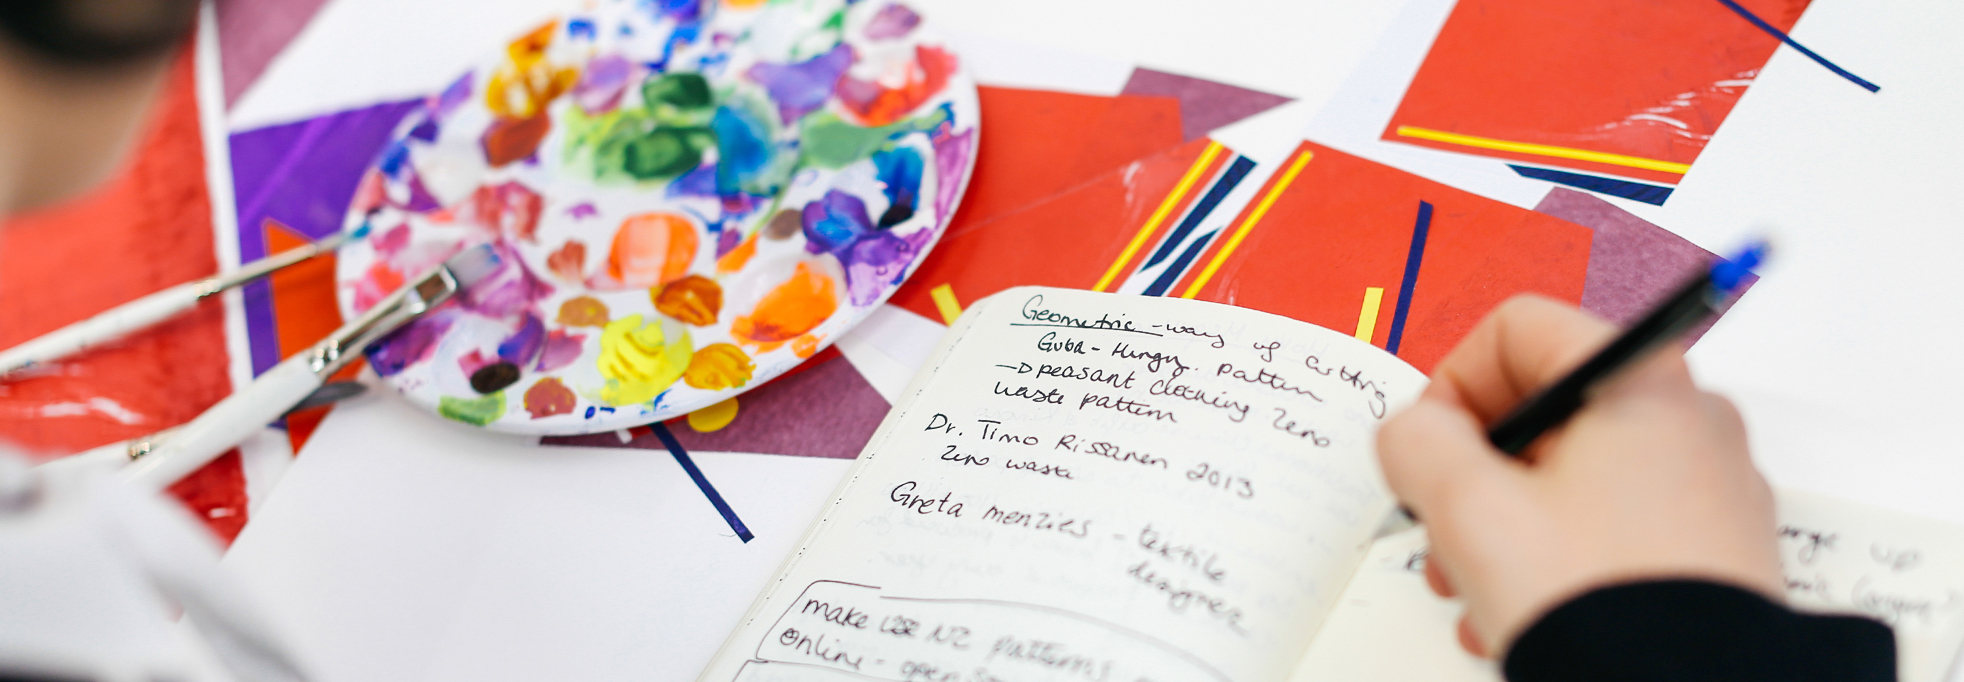 Geometric - way of cutting
Guba - Hungry. pattern
peasant clothing Zero
waste pattern
Dr. Timo Rissanen 2013
Zero waste
Greta menzies - textile
designer
make use NZ patterns
online - open
up